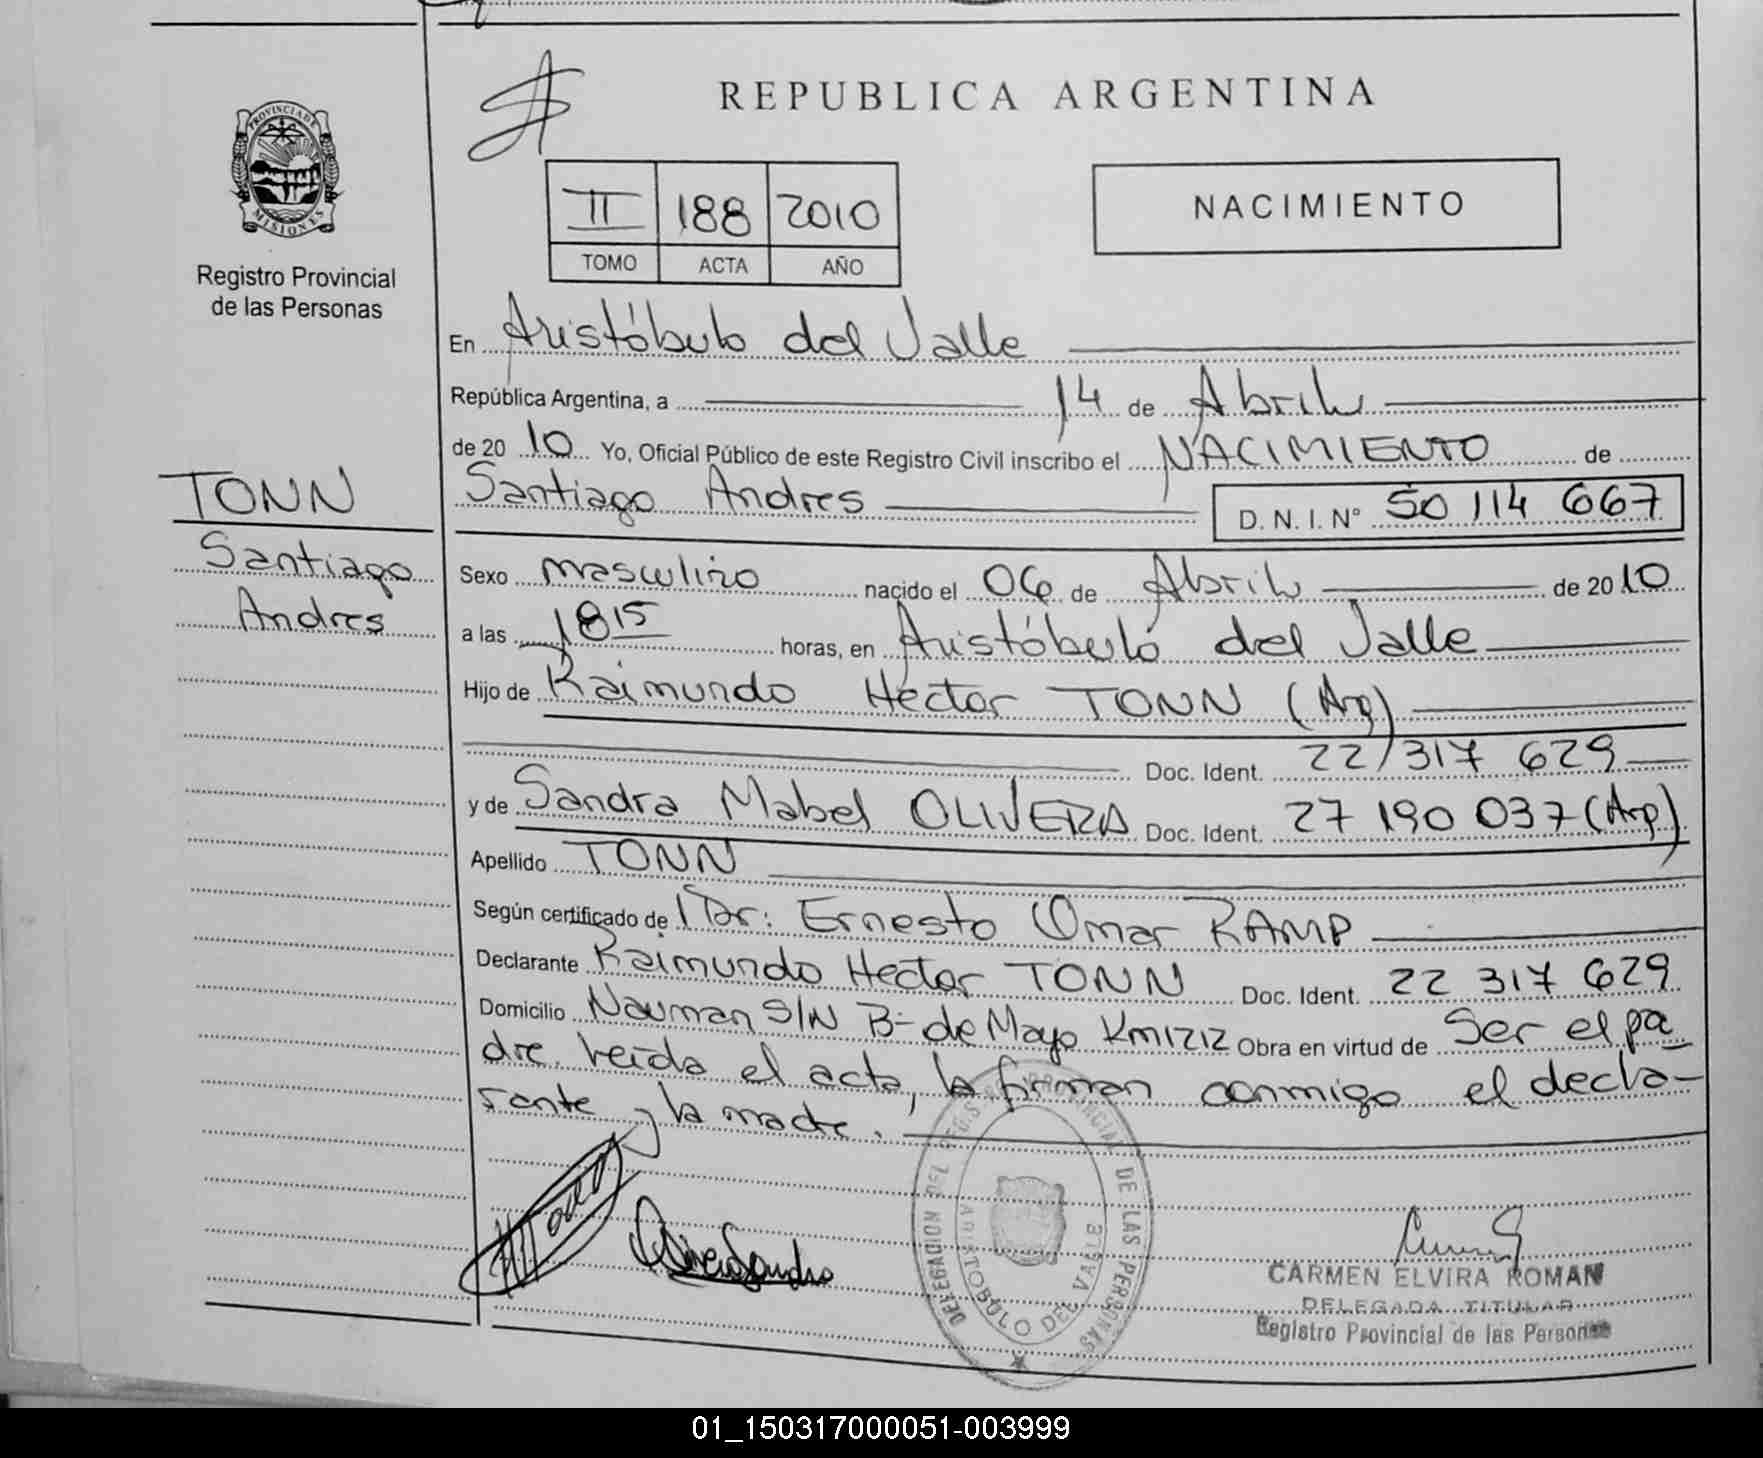 REPUBLICA ARGENTINA
PROVINCIA DE MISIONES
Registro Provincial
de las Personas
II 188 2010
TOMO ACTA AÑO
NACIMIENTO
En Aristóbulo del Valle
República Argentina, a 14 de Abril
de 20 10 Yo, Oficial Público de este Registro Civil inscribo el NACIMIENTO de
Santiago Andres D. N. I. N° 50 114 667
TONN
Santiago
Andres
Sexo masculino nacido el 06 de Abril de 20 10
a las 18 15 horas, en Aristóbulo del Valle
Hijo de Raimundo Hector TONN (Arg)
Doc. Ident. 22 317 629
y de Sandra Mabel OLIVERA Doc. Ident. 27 190 037 (Arg)
Apellido TONN
Según certificado de Dr: Ernesto Omar RAMP
Declarante Raimundo Hector TONN Doc. Ident. 22 317 629
Domicilio Nauman S/N B- de Mayo Km1212 Obra en virtud de Ser el pa
dre. Leída el acta, la firman conmigo el decla-
rante y la madre.
DELEGACION DEL REGISTRO PROVINCIAL DE LAS PERSONAS
ARISTOBULO DEL VALLE
CARMEN ELVIRA ROMAN
DELEGADA TITULAR
Registro Provincial de las Personas
01_150317000051-003999